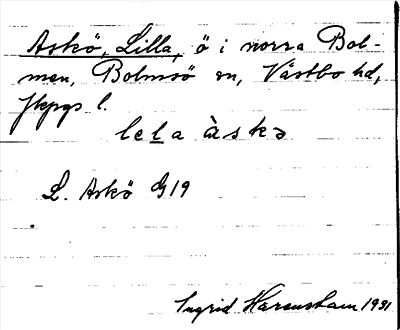 Askö, Lilla, ö i norra Bol-
men, Bolmsö sn, Västbo hd,
Jkpgs l.
lela àskə
L. Askö G19
Ingrid 1931